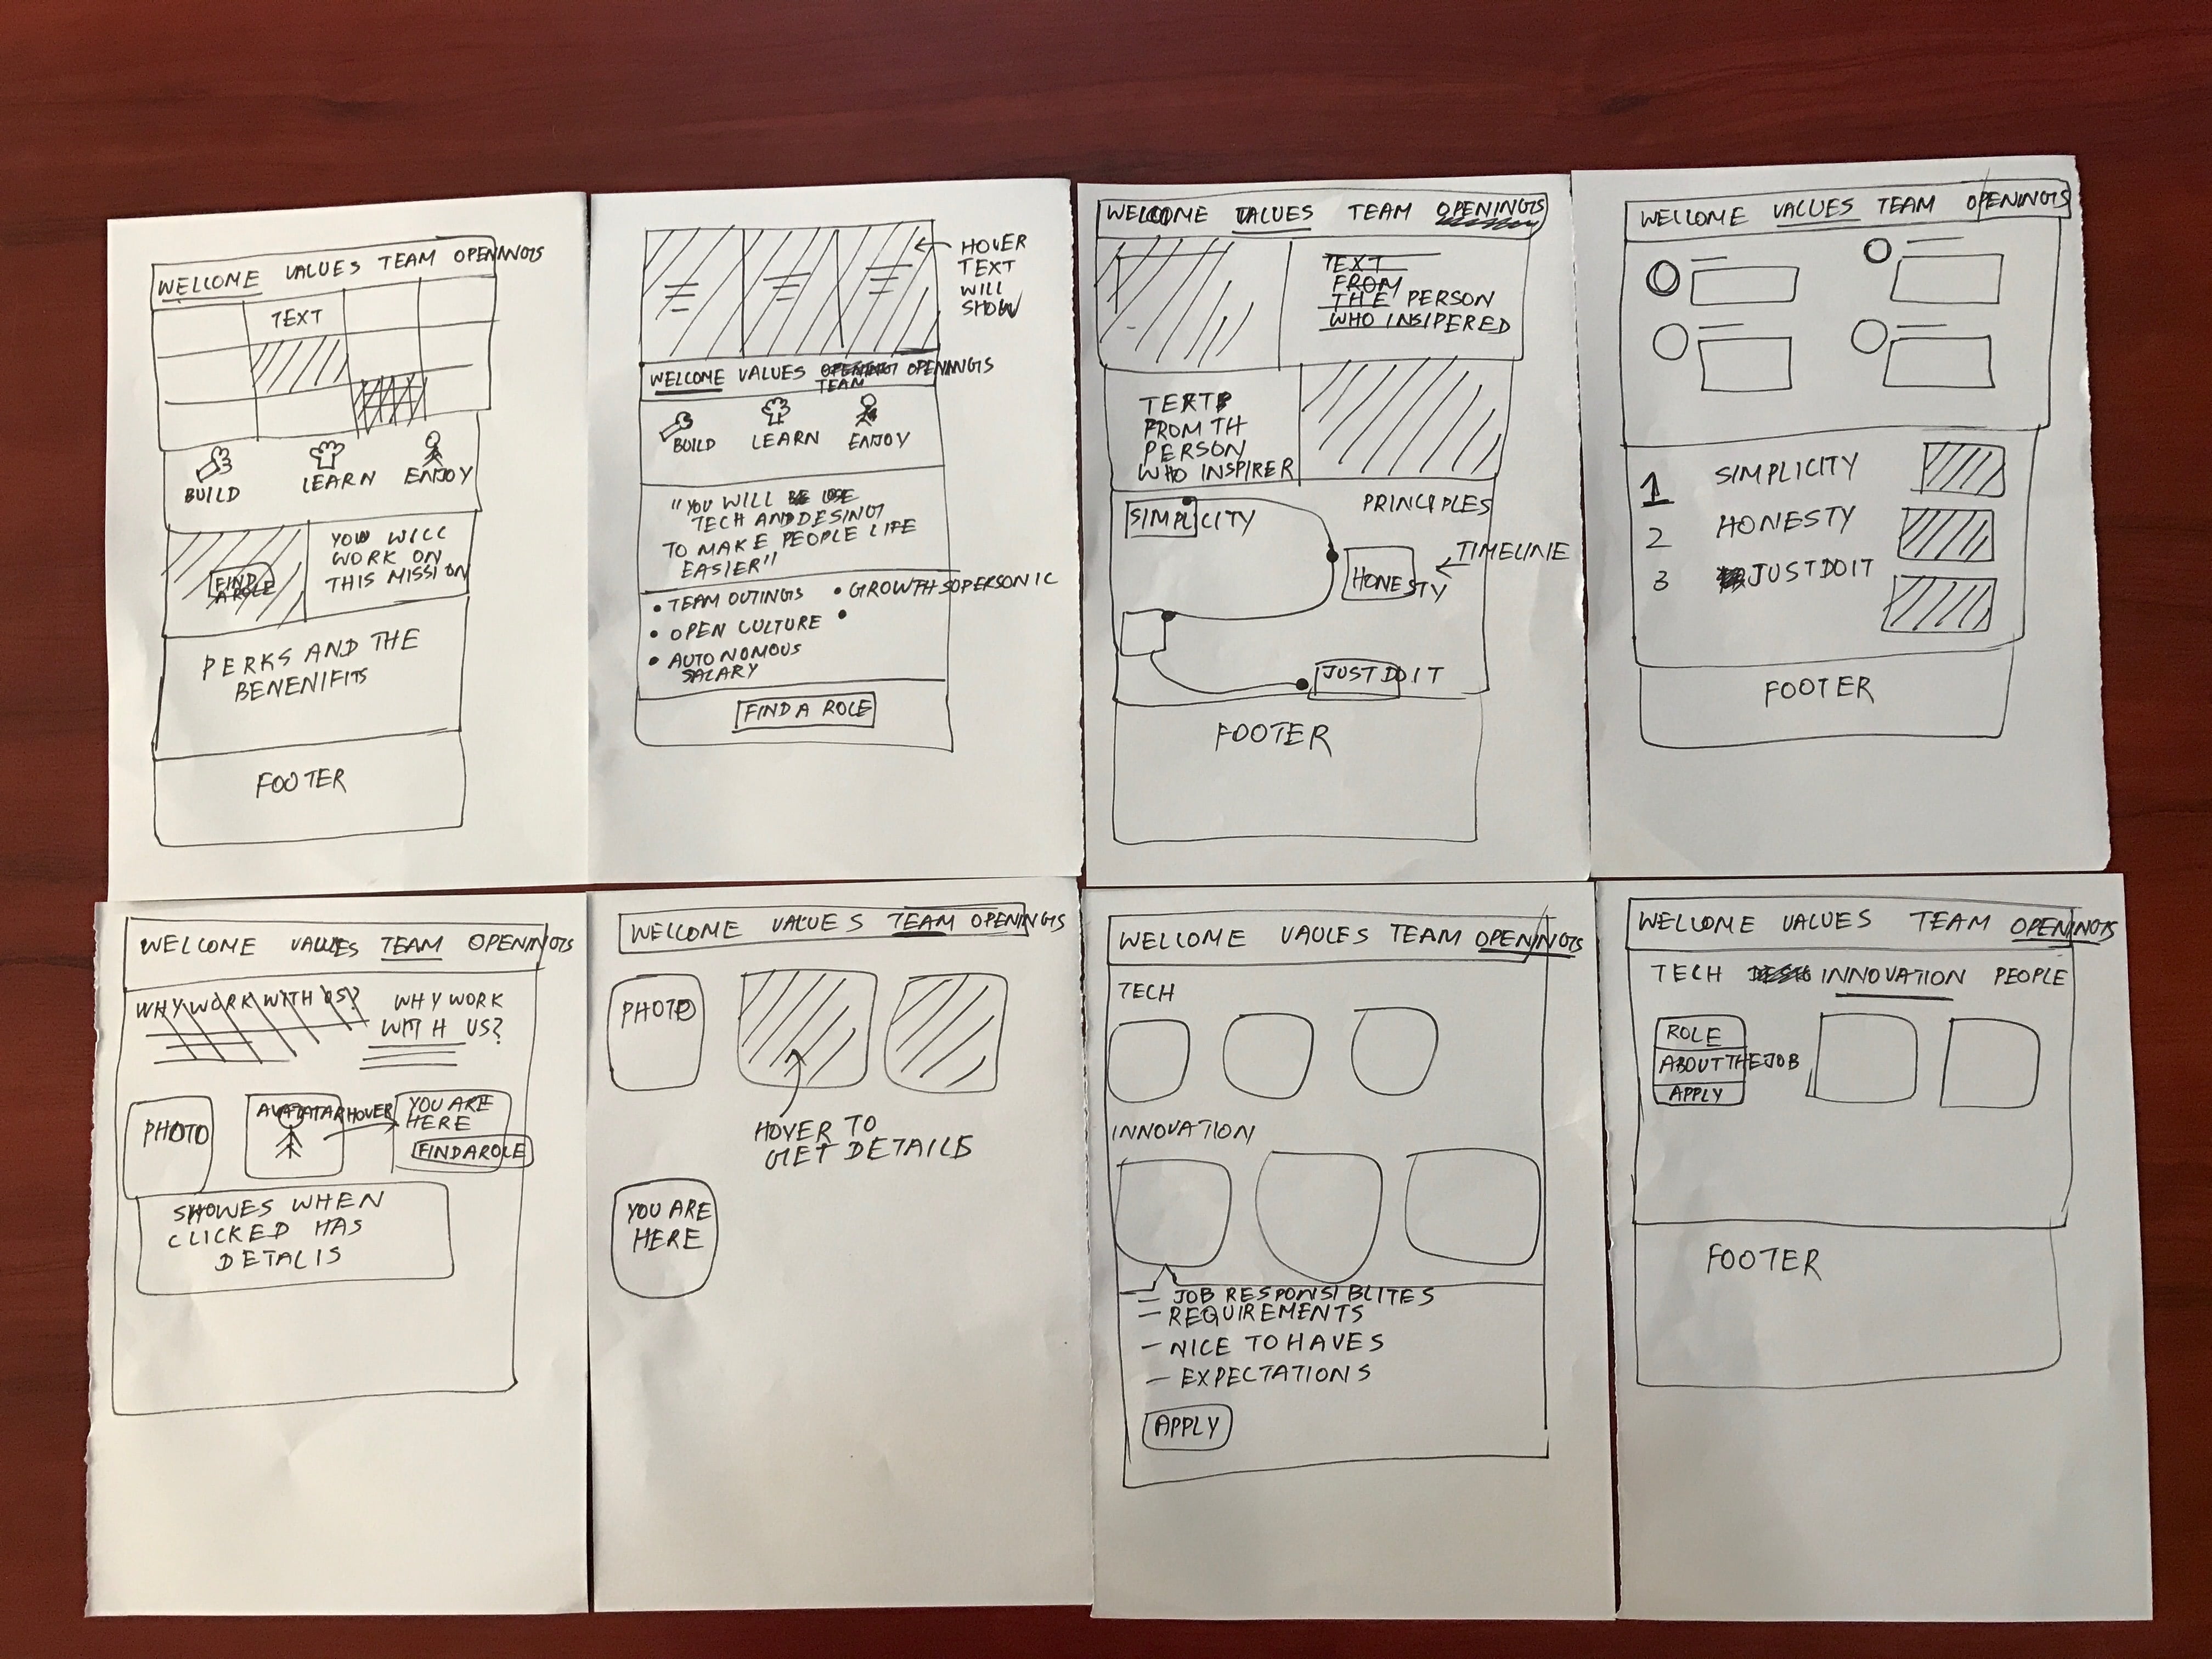 WELCOME VALUES TEAM OPENINGS
TEXT
BUILD LEARN ENJOY
FIND
A ROLE
YOU WILL
WORK ON
THIS MISSION
PERKS AND THE
BENENIFITS
FOOTER
HOVER
TEXT
WILL
SHOW
WELCOME VALUES OPENINGS
TEAM
BUILD LEARN ENJOY
"YOU WILL USE
TECH AND DESING
TO MAKE PEOPLE LIFE
EASIER"
• TEAM OUTINGS • GROWTH SOPERSONIC
• OPEN CULTURE •
• AUTONOMOUS
SALARY
FIND A ROLE
WELCOME VALUES TEAM OPENINGS
TEXT
FROM
THE PERSON
WHO INSIPERED
FROM TH
PERSON
WHO INSPIRER
PRINCIPLES
SIMPLICITY
TIMELINE
HONESTY
JUST DO IT
FOOTER
WELCOME VALUES TEAM OPENINGS
1 SIMPLICITY
2 HONESTY
3 JUST DO IT
FOOTER
WELCOME VALUES TEAM OPENINGS
WHY WORK WITH US?
WHY WORK
WITH US?
PHOTO
HOVER
YOU ARE
HERE
FIND A ROLE
SHOWES WHEN
CLICKED HAS
DETALIS
WELCOME VALUES TEAM OPENINGS
PHOTO
HOVER TO
GET DETAILS
YOU ARE
HERE
WELCOME VAULES TEAM OPENINGS
TECH
INNOVATION
— JOB RESPONSIBLITES
— REQUIREMENTS
— NICE TO HAVES
— EXPECTATIONS
APPLY
WELCOME VALUES TEAM OPENINGS
TECH INNOVATION PEOPLE
ROLE
ABOUT THE JOB
APPLY
FOOTER